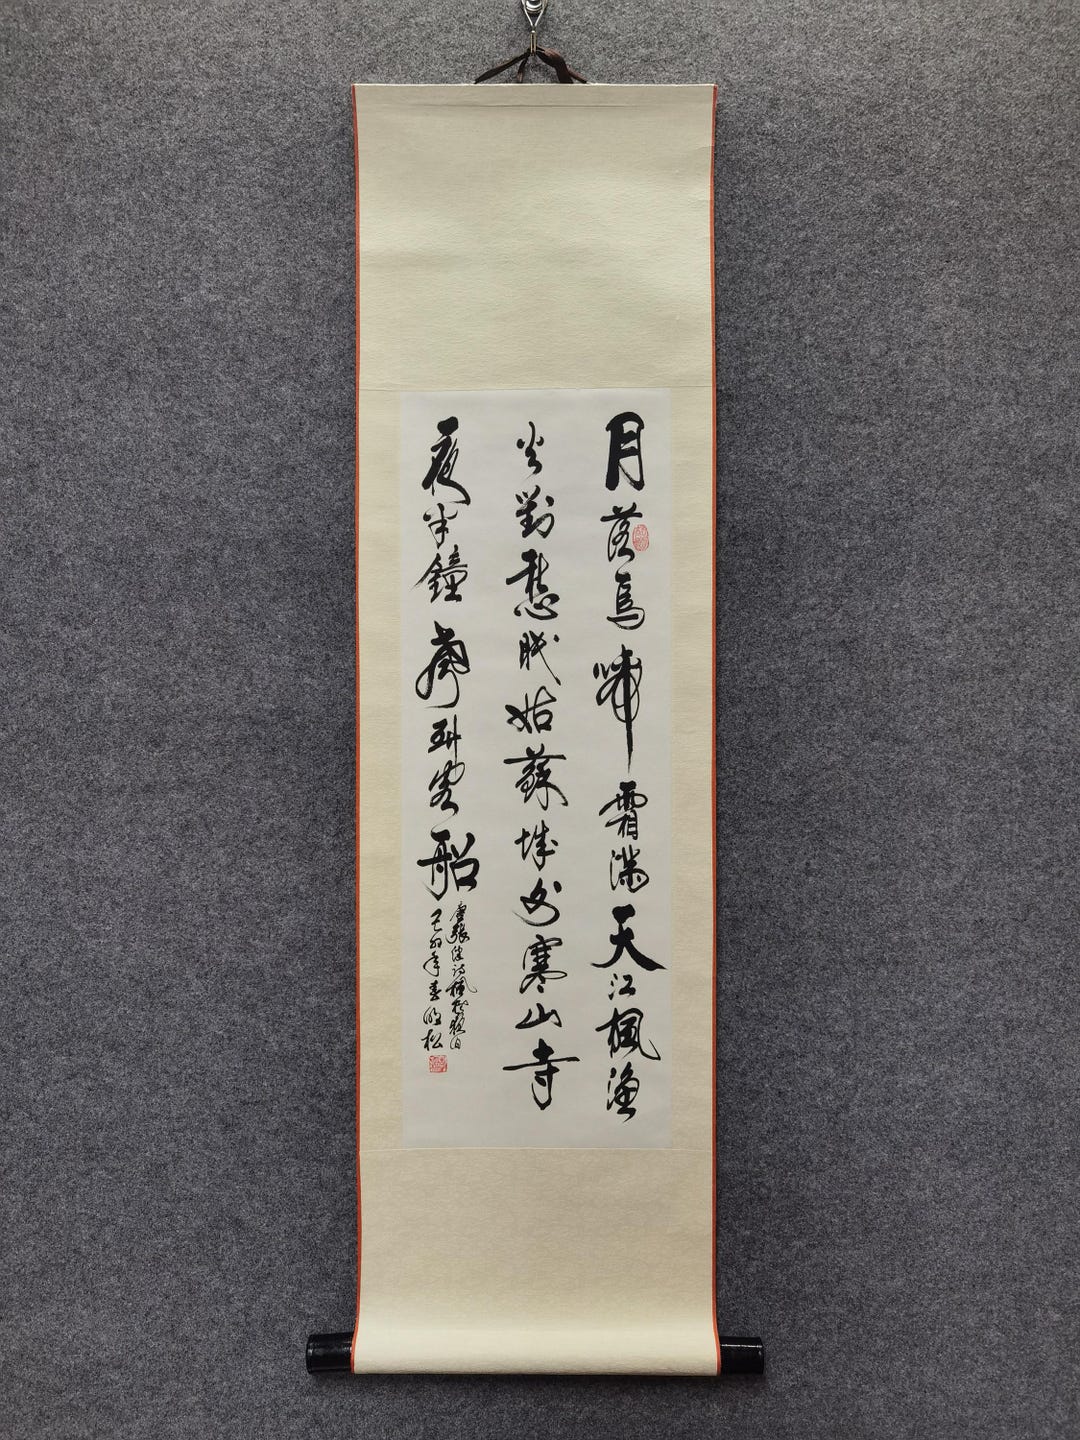 月落烏啼霜滿天江楓漁
火對愁眠姑蘇城外寒山寺
夜半鐘聲到客船
唐張繼詩楓橋夜泊
己卯年春松